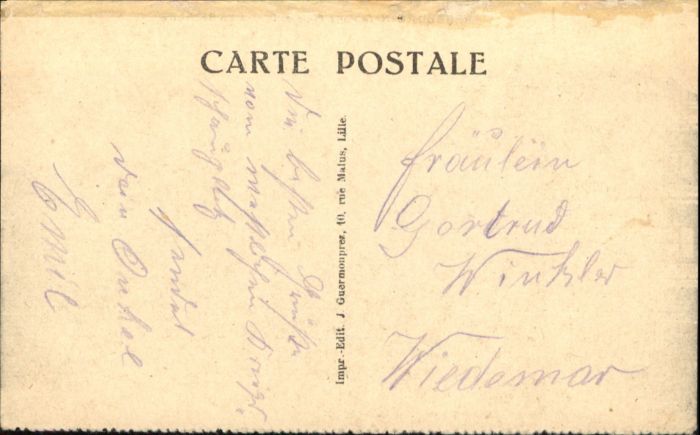 CARTE POSTALE
Die besten Grüße
vom westlichen Kriegs-
schauplatz
sendet
dein Onkel
Emil
Impr.-Edit. J Guermonprez, 10, rue Malus, Lille.
Fräulein
Gertrud
Winkler
Wiedemar